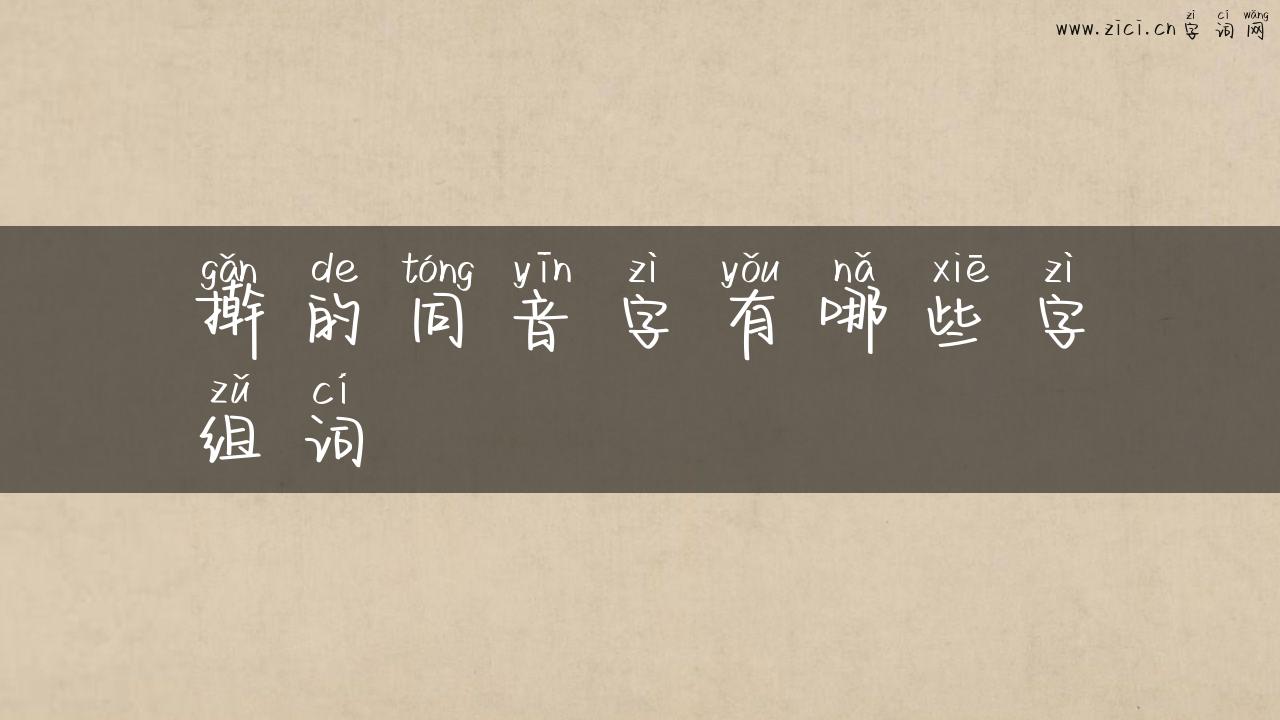 zì cí wǎng
www.zici.cn 字词网
gǎn de tóng yīn zì yǒu nǎ xiē zì
擀的同音字有哪些字
zǔ cí
组词